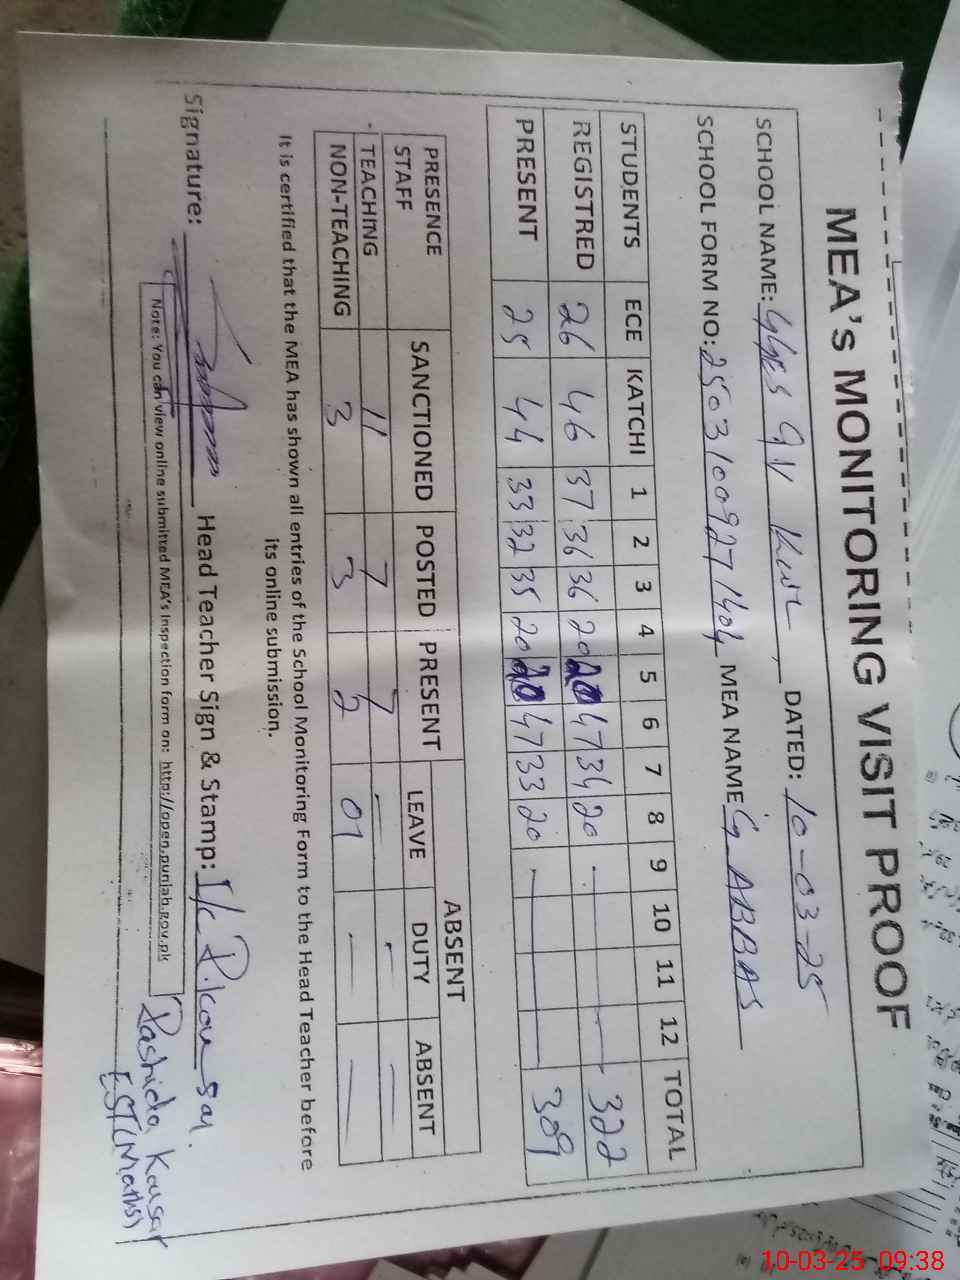 MEA's MONITORING VISIT PROOF
SCHOOL NAME: GGES DATED: 10-03-25
SCHOOL FORM NO: 25031009271404 MEA NAME G ABBAS
STUDENTS ECE KATCHI 1 2 3 4 5 6 7 8 9 10 11 12 TOTAL
REGISTRED 26 46 37 36 36 20 20 47 34 20 - - - - 322
PRESENT 25 44 33 32 35 20 20 47 33 20 - - - - 309
PRESENCE STAFF SANCTIONED POSTED PRESENT ABSENT
LEAVE DUTY ABSENT
TEACHING 11 7 7 - - -
NON-TEACHING 3 3 2 01 - -
It is certified that the MEA has shown all entries of the School Monitoring Form to the Head Teacher before
its online submission.
Signature: Head Teacher Sign & Stamp: I/c
Rashida Kausar
EST(Maths)
Note: You can view online submitted MEA's Inspection form on: http://open.punjab.gov.pk
10-03-25 09:38